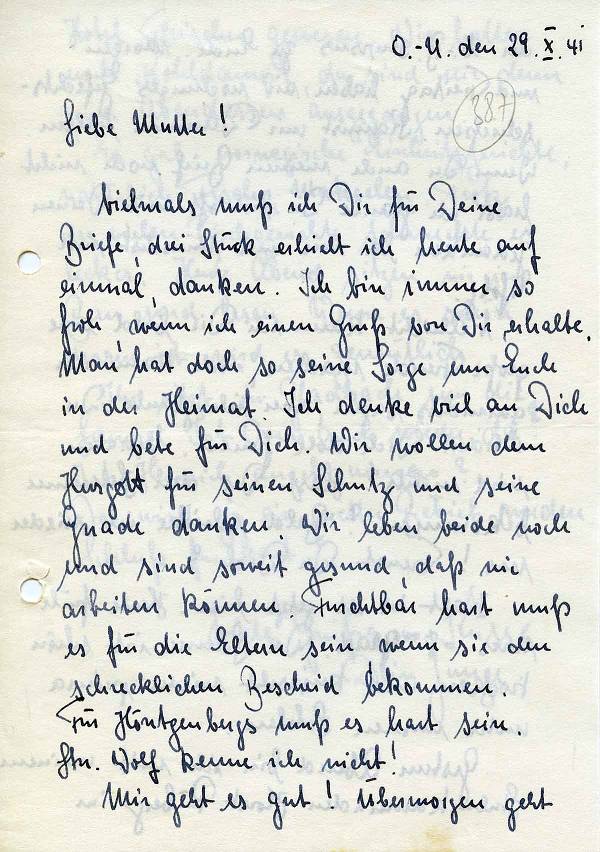 O.-U. den 29. X. 41
387
Liebe Mutter!
Vielmals muß ich Dir für Deine
Briefe, drei Stück erhielt ich heute auf
einmal, danken. Ich bin immer so
froh, wenn ich einen Gruß von Dir erhalte.
Man hat doch so seine Sorge um Euch
in der Heimat. Ich denke viel an Dich
und bete für Dich. Wir wollen dem
Herrgott für seinen Schutz und seine
Gnade danken. Wir leben beide noch
und sind soweit gesund, daß wir
arbeiten können. Furchtbar hart muß
es für die Eltern sein, wenn sie den
schrecklichen Bescheid bekommen.
Für Höntgenbergs muß es hart sein.
Stn. Wolf kenne ich nicht!
Mir geht es gut! Übermorgen geht